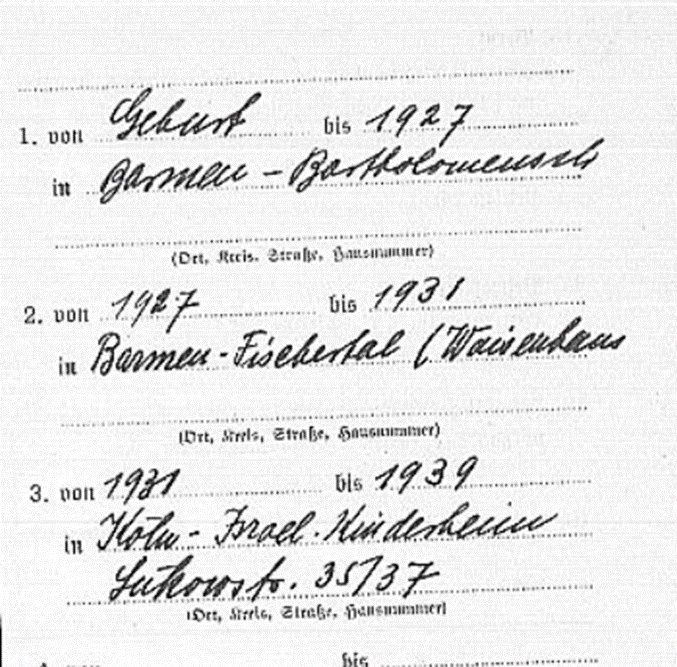 1. von Geburt bis 1927
in Barmen - Bartholomeusstr
(Ort, Kreis, Straße, Hausnummer)
2. von 1927 bis 1931
in Barmen - Fischertal (Waisenhaus
(Ort, Kreis, Straße, Hausnummer)
3. von 1931 bis 1939
in Köln - Israel. Kinderheim
Lützowstr. 35/37
(Ort, Kreis, Straße, Hausnummer)
bis